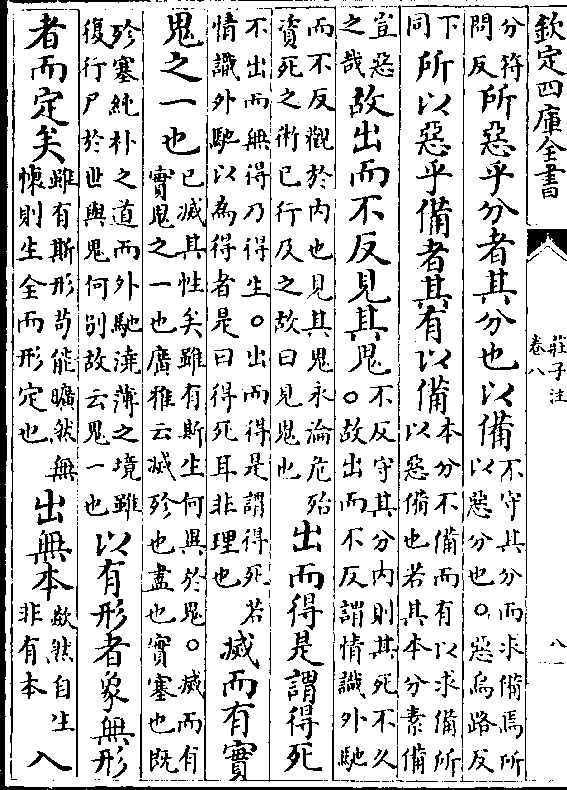 欽定四庫全書 莊子注 卷八 八
分符問反所惡乎分者其分也以備不守其分而求備焉所以惡分也。惡烏路反
下同所以惡乎備者其有以備本分不備而有以求備所以惡備也若其本分素備
豈惡之哉故出而不反見其鬼不反守其分内則其死不久。故出而不反謂情識外馳
而不反觀於内也見其鬼永淪危殆資死之術已行及之故曰見鬼也出而得是謂得死
不出而無得乃得生。出而得是謂得死若情識外馳以為得者是曰得死耳非理也滅而有實
鬼之一也已滅其性矣雖有斯生何異於鬼。滅而有實鬼之一也廣雅云滅殄也盡也實塞也既
殄塞純朴之道而外馳澆薄之境雖復行尸於世與鬼何别故云鬼一也以有形者象無形
者而定矣雖有斯形苟能曠然無懷則生全而形定也出無本欻然自生非有本入